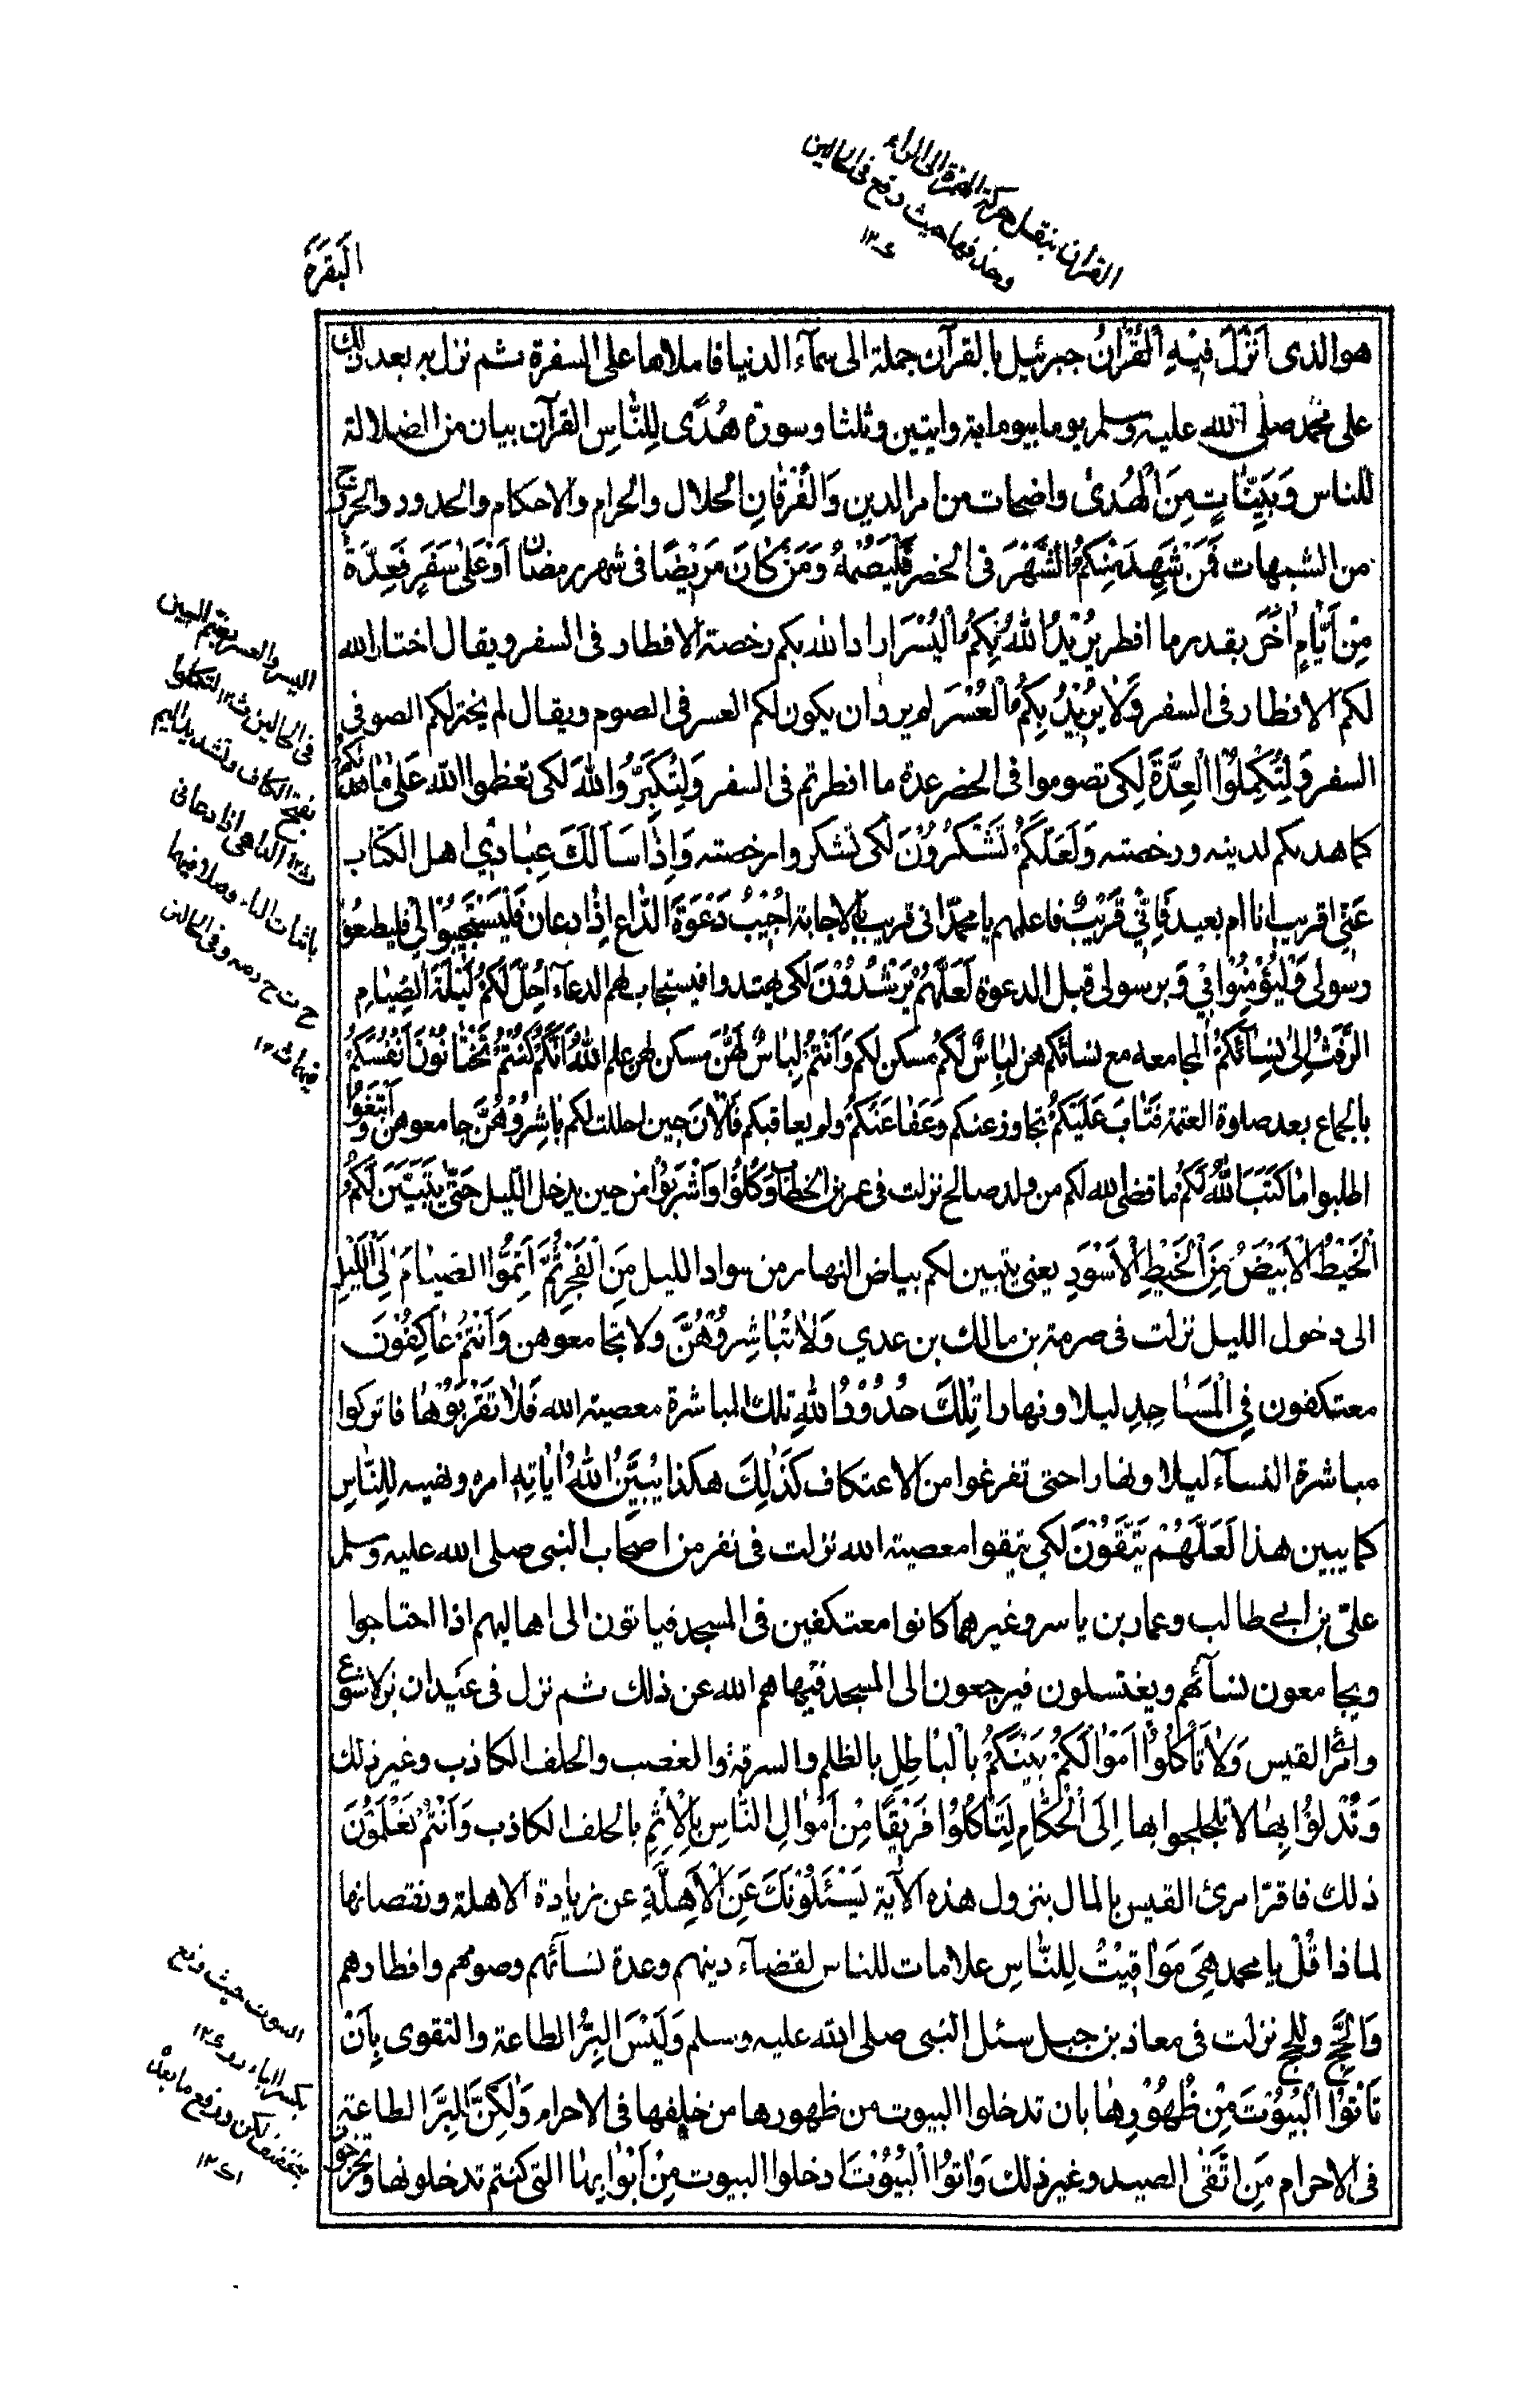 القرآن بنقل حركة الهمزة الى الراء
وحذفها حيث وقع فى الحالين
البقرة
هو الذى اُنْزِلَ فِيْهِ الْقُرْاٰنُ جبرئيل بالقرآن جملة الى سمآء الدنيا فاملاها على السفرة ثم نزل به بعد ذلك
على محمد صلى الله عليه وسلم يوما بيوم اية وايتين وثلثا وسورة هُدًى لِلنَّاسِ القرآن بيان من الضلالة
للناس وَبَيِّنَاتٍ مِنَ الْهُدٰى واضحات من امر الدين وَالْفُرْقَانِ الحلال والحرام والاحكام والحدود والخروج
من الشبهات فَمَنْ شَهِدَ مِنْكُمُ الشَّهْرَ فى الحضر فَلْيَصُمْهُ وَمَنْ كَانَ مَرِيْضًا فى شهر رمضان اَوْ عَلٰى سَفَرٍ فَعِدَّةٌ
مِنْ اَيَّامٍ اُخَرَ بقدر ما افطر يُرِيْدُ اللّٰهُ بِكُمُ الْيُسْرَ اراد الله بكم رخصة الافطار فى السفر ويقال اختار الله
لكم الافطار فى السفر وَلَا يُرِيْدُ بِكُمُ الْعُسْرَ لم يرد ان يكون لكم العسر فى الصوم ويقال لم يختر لكم الصوم فى
السفر وَلِتُكْمِلُوا الْعِدَّةَ لكى تصوموا فى الحضر عدة ما افطرتم فى السفر وَلِتُكَبِّرُوا اللّٰهَ لكى تعظموا الله عَلٰى مَا هَدٰىكُمْ
كما هدىكم لدينه ورخصته وَلَعَلَّكُمْ تَشْكُرُوْنَ لكى تشكروا رخصته وَاِذَا سَاَلَكَ عِبَادِيْ اهل الكتاب
عَنِّي اقريب انا ام بعيد فَاِنِّيْ قَرِيْبٌ فاعلمهم يا محمد انى قريب بالاجابة اُجِيْبُ دَعْوَةَ الدَّاعِ اِذَا دعان فَلْيَسْتَجِيْبُوْا لِيْ فليطيعوا
رسولى وَلْيُؤْمِنُوْا بِيْ وبرسولى قبل الدعوة لَعَلَّهُمْ يَرْشُدُوْنَ لكى يهتدوا فيستجاب لهم الدعآء اُحِلَّ لَكُمْ لَيْلَةَ الصِّيَامِ
الرَّفَثُ اِلٰى نِسَآئِكُمْ المجامعه مع نسائكم هن لِبَاسٌ لَكُمْ مسكن لكم وَاَنْتُمْ لِبَاسٌ لَهُنَّ مسكن لهن علم اللّٰهُ اَنَّكُمْ كُنْتُمْ تَخْتَانُوْنَ اَنْفُسَكُمْ
بالجماع بعد صلوة العتمة فَتَابَ عَلَيْكُمْ تجاوز عنكم وَعَفَا عَنْكُمْ ولم يعاقبكم فَالْاٰنَ حين احللت لكم بَاشِرُوْهُنَّ جامعوهن وَابْتَغُوْا
اطلبوا مَا كَتَبَ اللّٰهُ لَكُمْ ما قضى الله لكم من ولد صالح نزلت فى عمر بن الخطاب وَكُلُوْا وَاشْرَبُوْا من حين يدخل الليل حَتّٰى يَتَبَيَّنَ لَكُمُ
الْخَيْطُ الْاَبْيَضُ مِنَ الْخَيْطِ الْاَسْوَدِ يعنى يتبين لكم بياض النهار من سواد الليل مِنَ الْفَجْرِ ثُمَّ اَتِمُّوا الصِّيَامَ اِلَى الَّيْلِ
الى دخول الليل نزلت فى صرمة بن مالك بن عدي وَلَا تُبَاشِرُوْهُنَّ ولا تجامعوهن وَاَنْتُمْ عَاكِفُوْنَ
معتكفون فِي الْمَسَاجِدِ ليلا ونهارا تِلْكَ حُدُوْدُ اللّٰهِ تلك المباشرة معصية الله فَلَا تَقْرَبُوْهَا فاتركوا
مباشرة النسآء ليلا ونهارا حتى تفرغوا من الاعتكاف كَذٰلِكَ هكذا يُبَيِّنُ اللّٰهُ اٰيَاتِهٖ امره ونهيه لِلنَّاسِ
كما يبين هذا لَعَلَّهُمْ يَتَّقُوْنَ لكى يتقوا معصية الله نزلت فى نفر من اصحاب النبى صلى الله عليه وسلم
علىّ بن ابي طالب وعمار بن ياسر وغيرهما كانوا معتكفين فى المسجد فياتون الى اهاليهم اذا احتاجوا
ويجامعون نسآئهم ويغتسلون فيرجعون الى المسجد فنهاهم الله عن ذلك ثم نزل فى عبدان بن الاشوع
وامرئ القيس وَلَا تَأْكُلُوْا اَمْوَالَكُمْ بَيْنَكُمْ بِالْبَاطِلِ بالظلم والسرقة والغصب والحلف الكاذب وغير ذلك
وَتُدْلُوْا بِهَا لا تلجلجوا بها اِلَى الْحُكَّامِ لِتَاْكُلُوْا فَرِيْقًا مِنْ اَمْوَالِ النَّاسِ بِالْاِثْمِ بالحلف الكاذب وَاَنْتُمْ تَعْلَمُوْنَ
ذلك فاقرّ امرئ القيس بالمال بنزول هذه الآية يَسْئَلُوْنَكَ عَنِ الْاَهِلَّةِ عن زيادة الاهلة ونقصانها
لماذا قُلْ يا محمد هِيَ مَوَاقِيْتُ لِلنَّاسِ علامات للناس لقضآء دينهم وعدة نسآئهم وصومهم وافطارهم
وَالْحَجِّ وللحج نزلت فى معاذ بن جبل سئل النبى صلى الله عليه وسلم وَلَيْسَ الْبِرُّ الطاعة والتقوى بِاَنْ
تَاْتُوا الْبُيُوْتَ مِنْ ظُهُوْرِهَا بان تدخلوا البيوت من ظهورها من خلفها فى الاحرام وَلٰكِنَّ الْبِرَّ الطاعة
فى الاحرام مَنِ اتَّقٰى الصيد وغير ذلك وَاْتُوا الْبُيُوْتَ ادخلوا البيوت مِنْ اَبْوَابِهَا التى كنتم تدخلونها وتخرجون
اليسر والعسر بضم السين
فى الحالين ث ١٢ لتكملوا
بفتح الكاف وتشديد الميم
ث ١٢ الداعى اذا دعانى
باثبات الياء وصلا فيهما
البيوت حيث وقع
بكسر الباء
بتخفيف لكن ورفع ما بعده